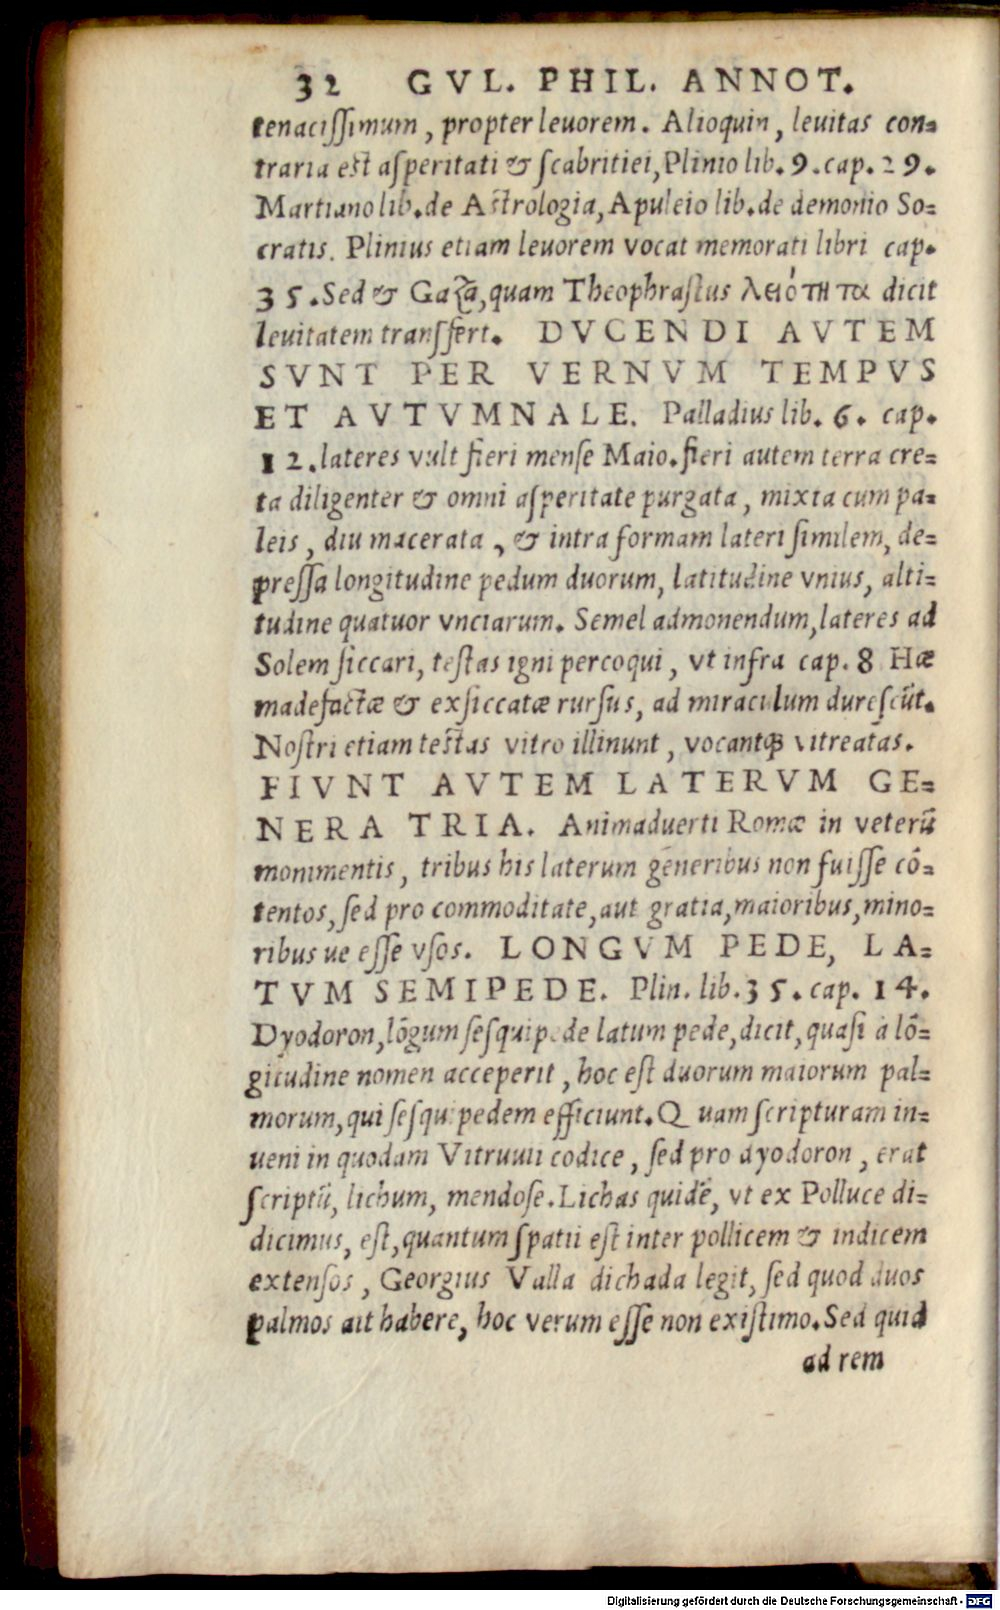 32 GVL. PHIL. ANNOT.
tenacissimum, propter leuorem. Alioquin, leuitas con=
traria est asperitati & scabritiei, Plinio lib. 9. cap. 29.
Martiano lib. de Astrologia, Apuleio lib. de demonio So=
cratis. Plinius etiam leuorem vocat memorati libri cap.
35. Sed & Gaza, quam Theophrastus λειότητα dicit
leuitatem transfert. DVCENDI AVTEM
SVNT PER VERNVM TEMPVS
ET AVTVMNALE. Palladius lib. 6. cap.
12. lateres vult fieri mense Maio. fieri autem terra cre=
ta diligenter & omni asperitate purgata, mixta cum pa=
leis, diu macerata, & intra formam lateri similem, de=
pressa longitudine pedum duorum, latitudine vnius, alti=
tudine quatuor vnciarum. Semel admonendum, lateres ad
Solem siccari, testas igni percoqui, vt infra cap. 8 Hæ
madefactæ & exsiccatæ rursus, ad miraculum durescūt.
Nostri etiam testas vitro illinunt, vocantqꝫ vitreatas.
FIVNT AVTEM LATERVM GE=
NERA TRIA. Animaduerti Romæ in veterū
monimentis, tribus his laterum generibus non fuisse cō=
tentos, sed pro commoditate, aut gratia, maioribus, mino=
ribus ue esse vsos. LONGVM PEDE, LA=
TVM SEMIPEDE. Plin. lib. 35. cap. 14.
Dyodoron, lōgum sesquipede latum pede, dicit, quasi a lō=
gitudine nomen acceperit, hoc est duorum maiorum pal=
morum, qui sesquipedem efficiunt. Quam scripturam in=
ueni in quodam Vitruuii codice, sed pro dyodoron, erat
scriptū, lichum, mendose. Lichas quidē, vt ex Polluce di=
dicimus, est, quantum spatii est inter pollicem & indicem
extensos, Georgius Valla dichada legit, sed quod duos
palmos ait habere, hoc verum esse non existimo. Sed quid
ad rem
Digitalisierung gefördert durch die Deutsche Forschungsgemeinschaft - DFG